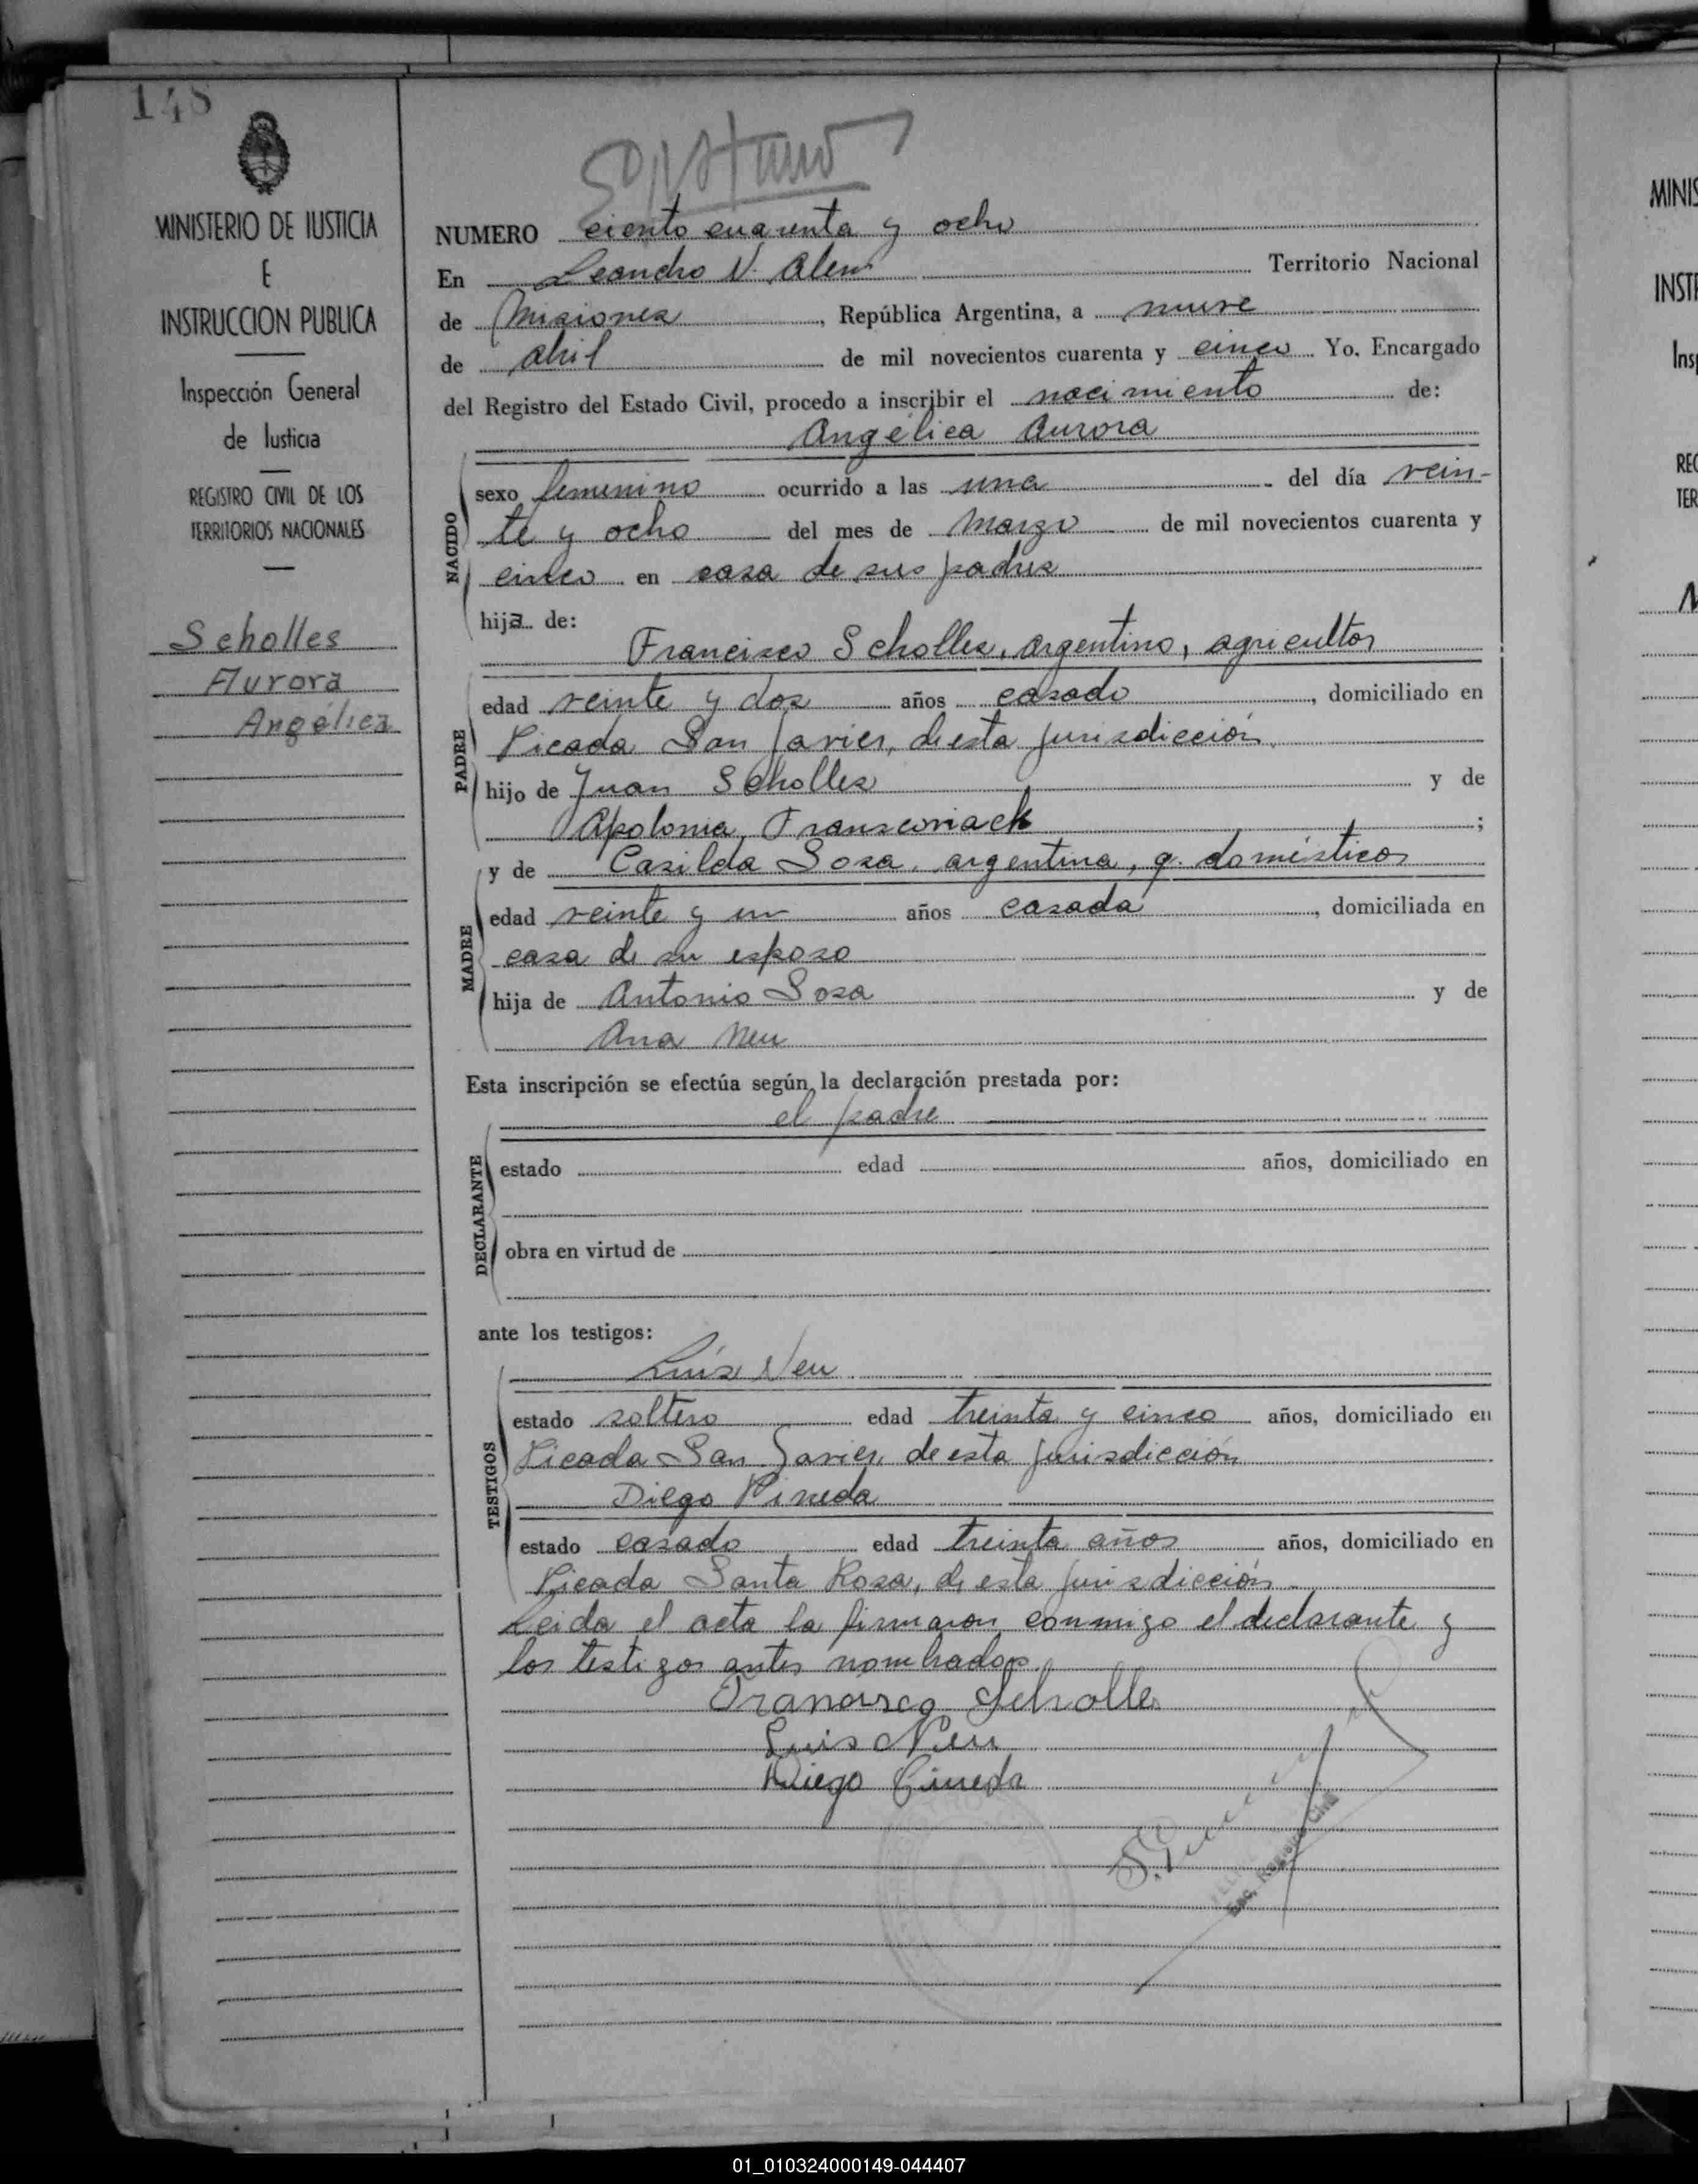 148
MINISTERIO DE JUSTICIA
E
INSTRUCCION PUBLICA
Inspección General
de Justicia
REGISTRO CIVIL DE LOS
TERRITORIOS NACIONALES
Scholles
Aurora
Angélica
NUMERO ciento cuarenta y ocho
En Leandro N. Alem Territorio Nacional
de Misiones, República Argentina, a nueve
de abril de mil novecientos cuarenta y cinco Yo, Encargado
del Registro del Estado Civil, procedo a inscribir el nacimiento de:
Angélica Aurora
NACIDO
sexo femenino ocurrido a las una del día vein-
te y ocho del mes de Marzo de mil novecientos cuarenta y
cinco en casa de sus padres
hija de:
Francisco Scholles, argentino, agricultor
PADRE
edad veinte y dos años casado, domiciliado en
Picada San Javier, de esta jurisdicción
hijo de Juan Scholles y de
Apolonia ;
y de Casilda Sosa, argentina, q. domésticos
MADRE
edad veinte y un años casada, domiciliada en
casa de su esposo
hija de Antonio Sosa y de
Ana Neu
Esta inscripción se efectúa según la declaración prestada por:
el padre
DECLARANTE
estado edad años, domiciliado en
obra en virtud de
ante los testigos:
TESTIGOS
Luis Neu
estado soltero edad treinta y cinco años, domiciliado en
Picada San Javier, de esta jurisdicción
Diego Pineda
estado casado edad treinta años años, domiciliado en
Picada Santa Rosa, de esta jurisdicción
Leida el acta la firmaron conmigo el declarante y
los testigos antes nombrados.
Francisco Scholles
Luis Neu
Diego Pineda
Enc. Registro Civil
MINIS
INSTR
Ins
REG
TER
N
01_010324000149-044407